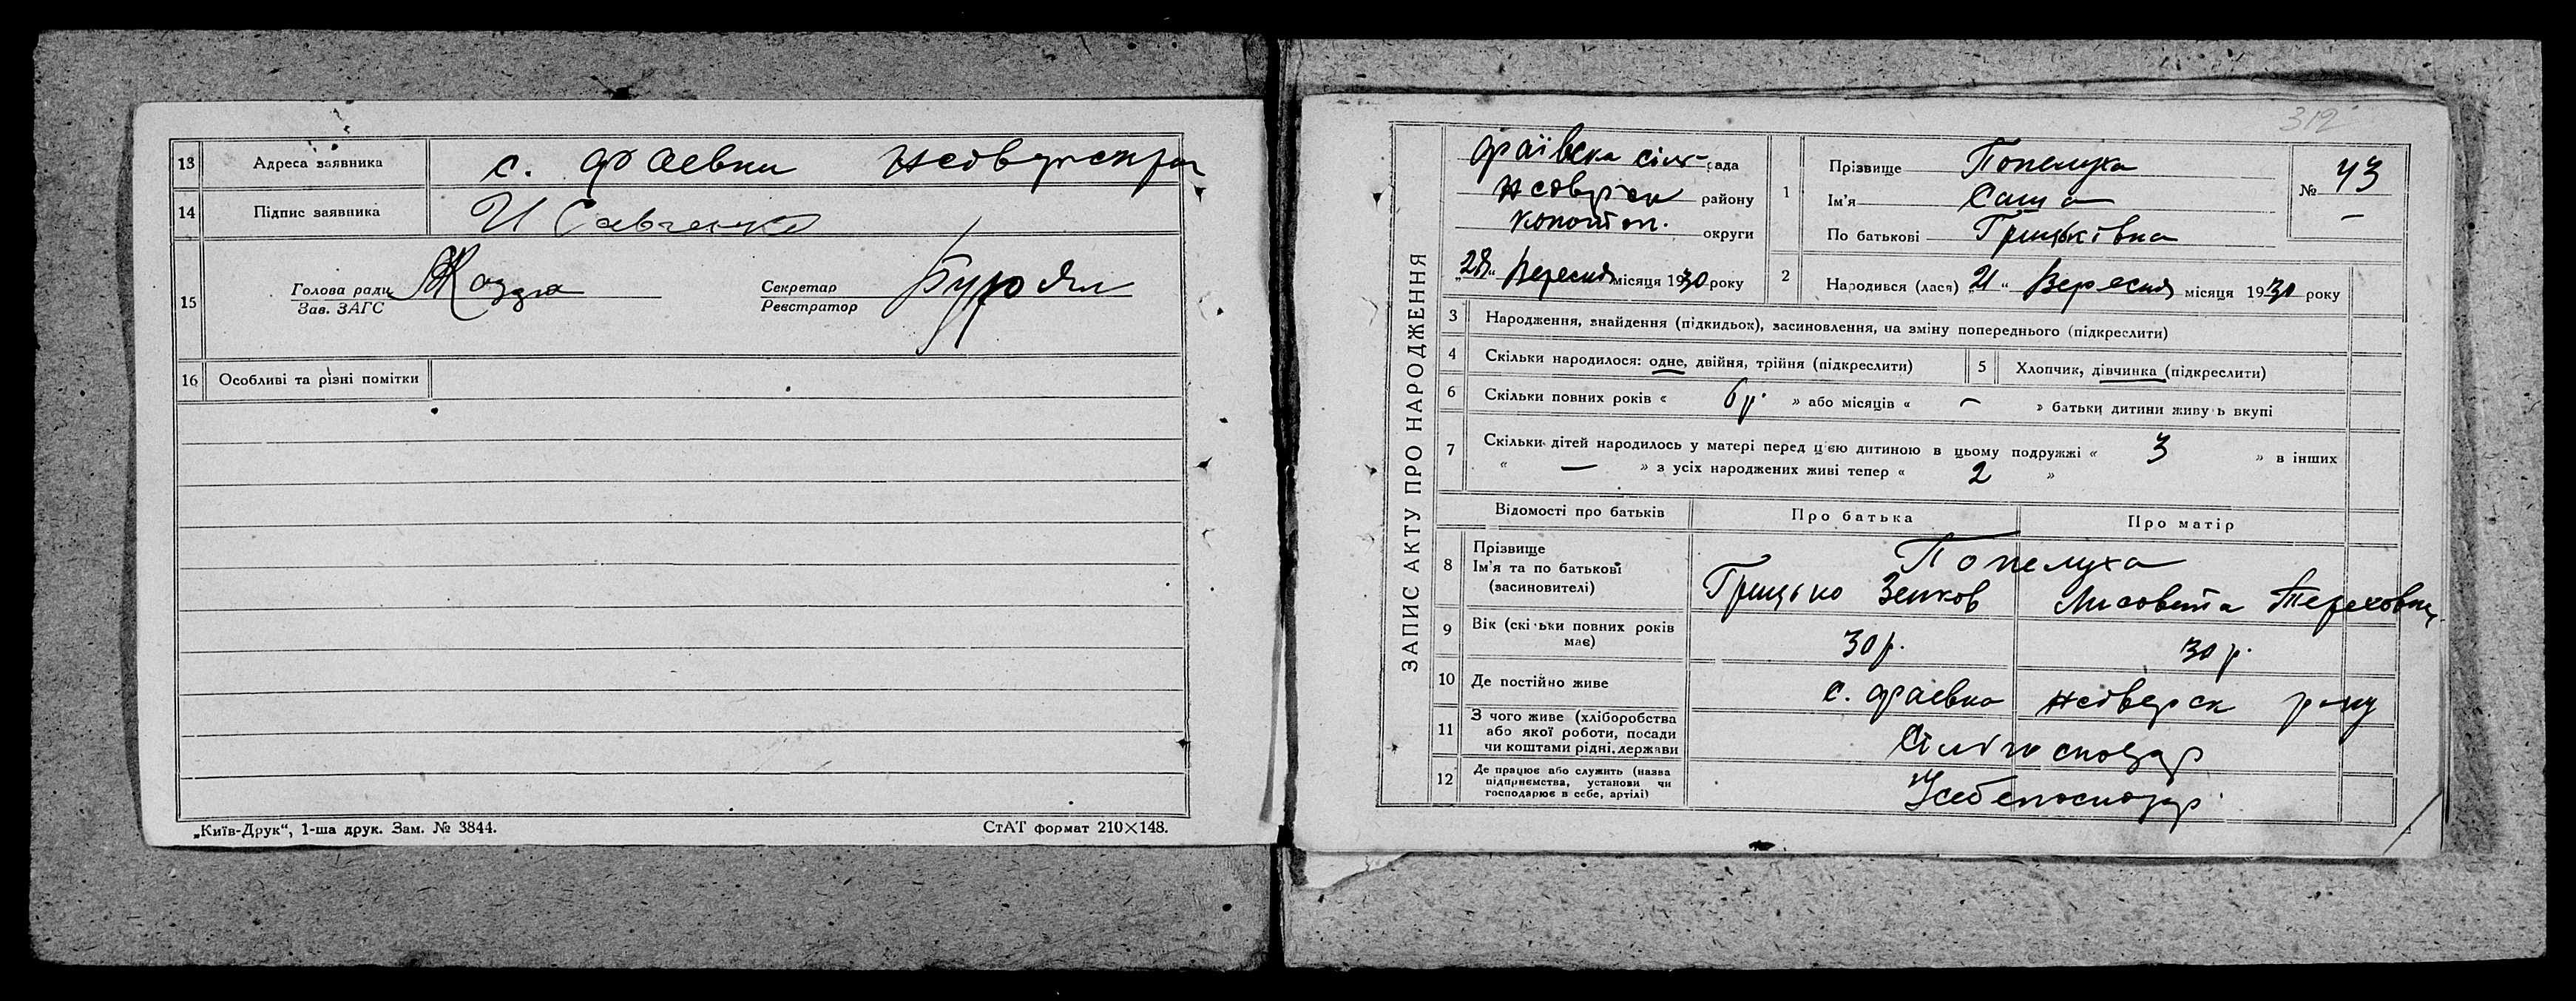 13 Адреса заявника с. Фаевки
14 Підпис заявника И Савченко
15 Голова ради
Зав. ЗАГС
Секретар
Реєстратор
16 Особливі та різні помітки
„Київ-Друк“, 1-ша друк. Зам. № 3844. СтАТ формат 210×148.
312
ЗАПИС АКТУ ПРО НАРОДЖЕННЯ
Фаївська сіль-рада
району
Конотоп. округи
„28“ Вересня місяця 1930 року
1 Прізвище Попелуха
Ім'я Саша
По батькові Грицьківна
№ 43
2 Народився (лася) „21“ Вересня місяця 1930 року
3 Народження, знайдення (підкидьок), засиновлення, на зміну попереднього (підкреслити)
4 Скільки народилося: одне, двійня, трійня (підкреслити)
5 Хлопчик, дівчинка (підкреслити)
6 Скільки повних років « 6 р. » або місяців « – » батьки дитини живуть вкупі
7 Скільки дітей народилось у матері перед цією дитиною в цьому подружжі « 3 » в інших
« — » з усіх народжених живі тепер « 2 »
Відомості про батьків Про батька Про матір
8 Прізвище
Ім'я та по батькові
(засиновителі)
Попелуха
Грицько Зеиков Лисовета Тереховна
9 Вік (скільки повних років
має)
30 р. 30 р.
10 Де постійно живе с. Фаевка
11 З чого живе (хліборобства
або якої роботи, посади
чи коштами рідні, держави
Сілігосподар
12 Де працює або служить (назва
підприємства, установи чи
господарює в себе, артілі)